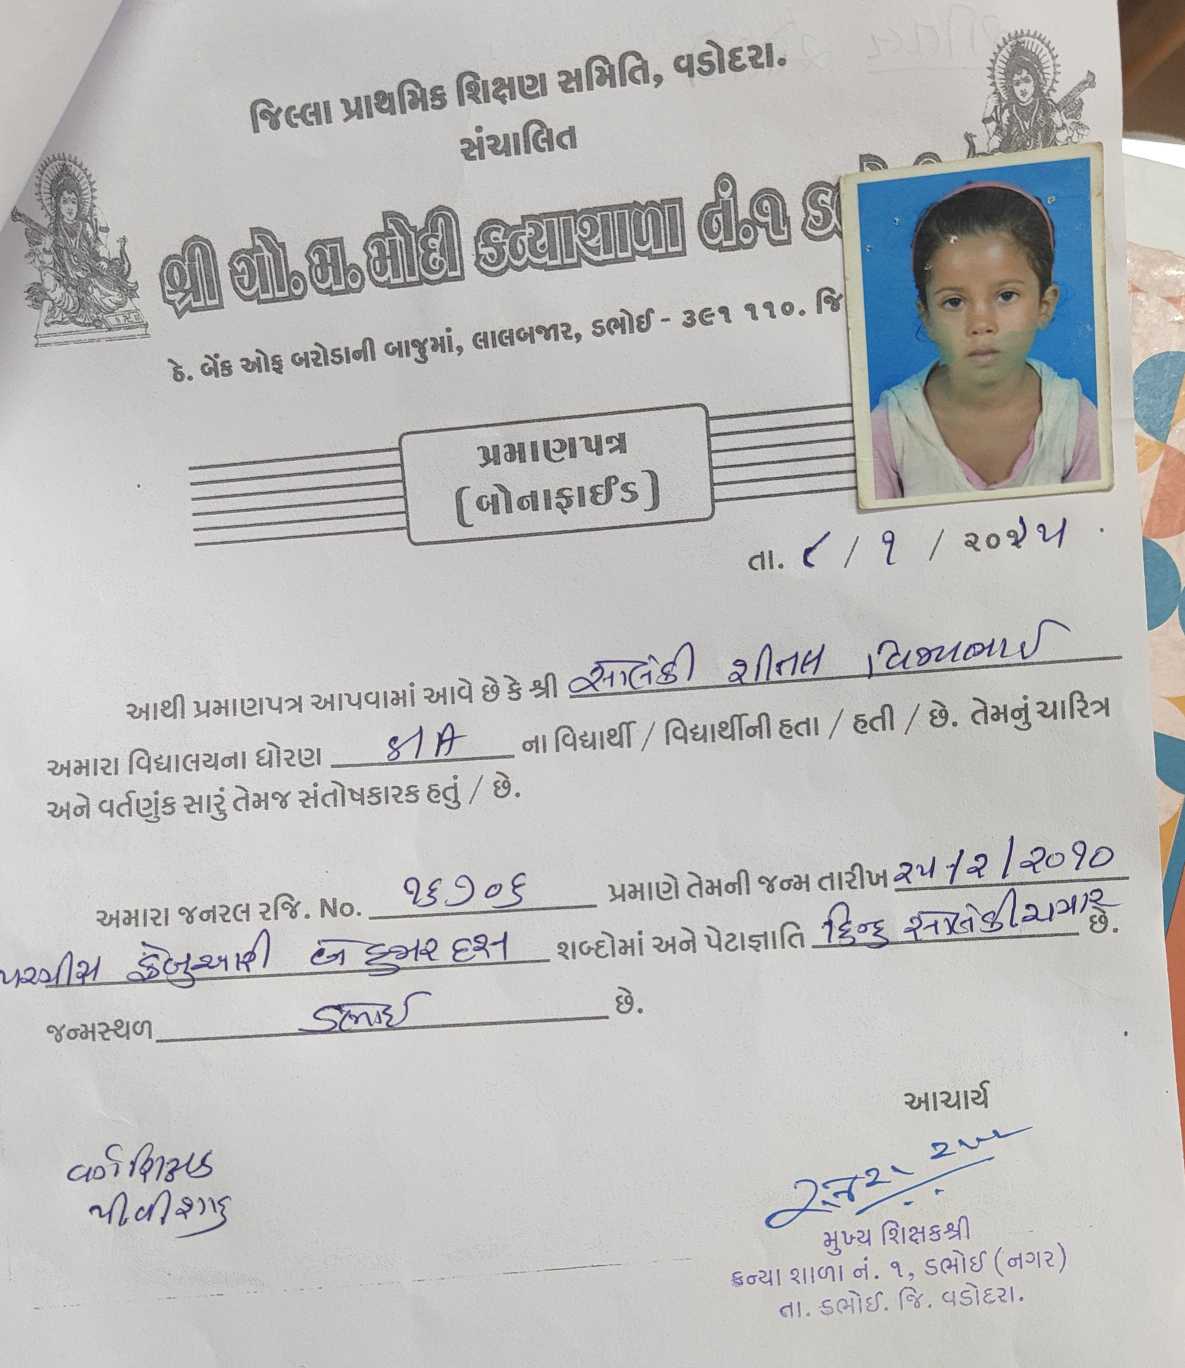 જિલ્લા પ્રાથમિક શિક્ષણ સમિતિ, વડોદરા.
સંચાલિત
શ્રી ગો. મ. મોદી કન્યાશાળા નં.૧
ઠે. બેંક ઓફ બરોડાની બાજુમાં, લાલબજાર, ડભોઈ - ૩૯૧ ૧૧૦. જિ
પ્રમાણપત્ર
(બોનાફાઈડ)
તા. ૮ / ૧ / ૨૦૨૫
આથી પ્રમાણપત્ર આપવામાં આવે છે કે શ્રી સોલંકી શીતલ વિજયભાઈ
અમારા વિદ્યાલયના ધોરણ ૪/A ના વિદ્યાર્થી / વિદ્યાર્થીની હતા / હતી / છે. તેમનું ચારિત્ર
અને વર્તણુંક સારું તેમજ સંતોષકારક હતું / છે.
અમારા જનરલ રજિ. No. ૧૬૭૦૬ પ્રમાણે તેમની જન્મ તારીખ ૨૫/૨/૨૦૧૦
પચ્ચીસ ફેબ્રુઆરી બે હજાર દસ શબ્દોમાં અને પેટાજ્ઞાતિ હિન્દુ સોલંકી ચમાર છે.
જન્મસ્થળ ડભોઈ છે.
આચાર્ય
વર્ગ શિક્ષક
મુખ્ય શિક્ષકશ્રી
કન્યા શાળા નં. ૧, ડભોઈ (નગર)
તા. ડભોઈ. જિ. વડોદરા.